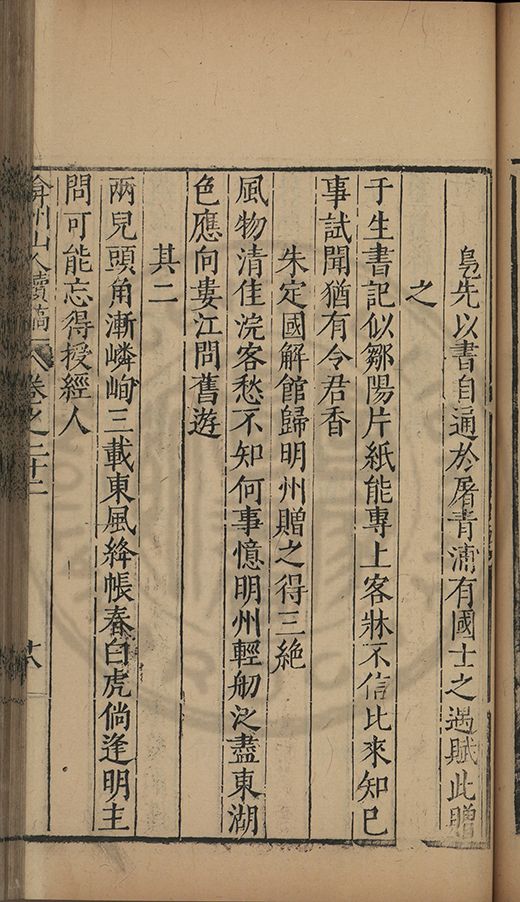 鳧先以書自通於屠青浦有國士之遇賦此贈
之
于生書記似鄒陽片紙能專上客牀不信比來知已
事試聞猶有令君香
朱定國解館歸明州贈之得三絶
風物清佳浣客愁不知何事憶明州輕舠泛盡東湖
色應向婁江問舊遊
其二
兩兒頭角漸嶙峋三載東風絳帳春白虎倘逢明主
問可能忘得授經人
弇州山人續稿 卷之二十二